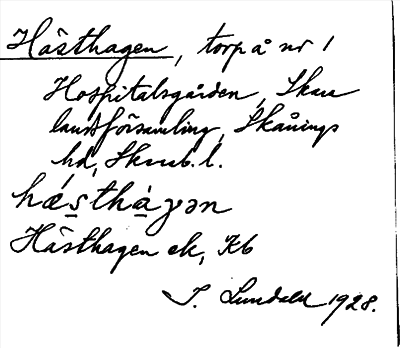 Hästhagen, torp å nr 1
Hospitalsgården, Skara
landsförsamling, Skånings
hd, Skarab. l.
hǽs̲thà̲γən
Hästhagen ek, Kb
S. Lundahl 1928.